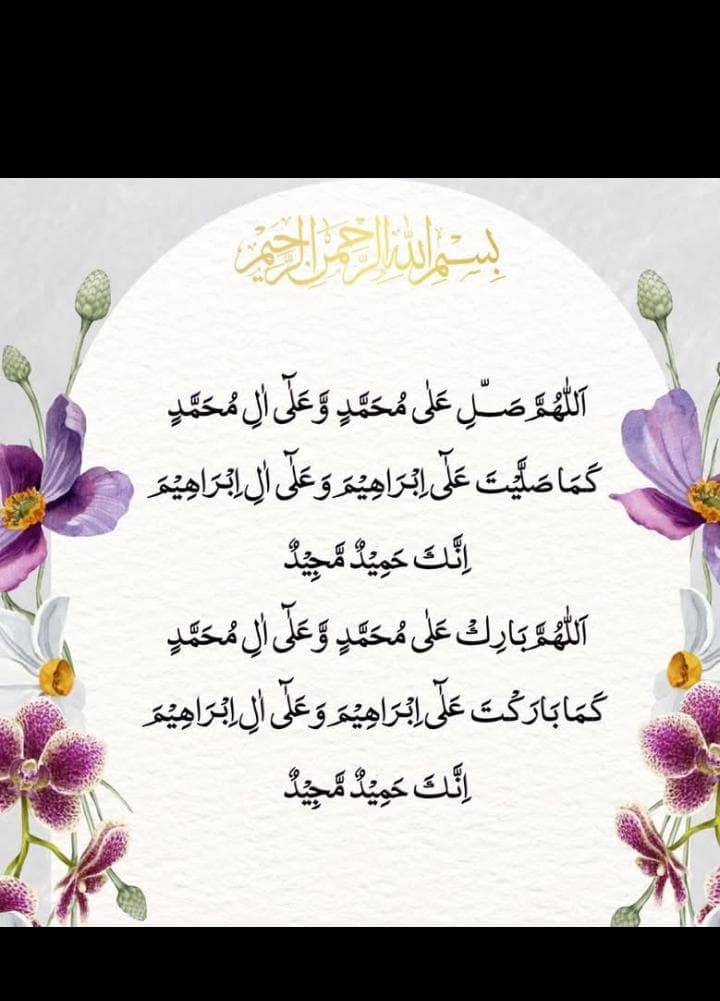 بِسْمِ اللهِ الرَّحْمٰنِ الرَّحِيْمِ
اَللّٰهُمَّ صَلِّ عَلٰى مُحَمَّدٍ وَّعَلٰٓى اٰلِ مُحَمَّدٍ
كَمَا صَلَّيْتَ عَلٰٓى اِبْرَاهِيْمَ وَعَلٰٓى اٰلِ اِبْرَاهِيْمَ
اِنَّكَ حَمِيْدٌ مَّجِيْدٌ
اَللّٰهُمَّ بَارِكْ عَلٰى مُحَمَّدٍ وَّعَلٰٓى اٰلِ مُحَمَّدٍ
كَمَا بَارَكْتَ عَلٰٓى اِبْرَاهِيْمَ وَعَلٰٓى اٰلِ اِبْرَاهِيْمَ
اِنَّكَ حَمِيْدٌ مَّجِيْدٌ